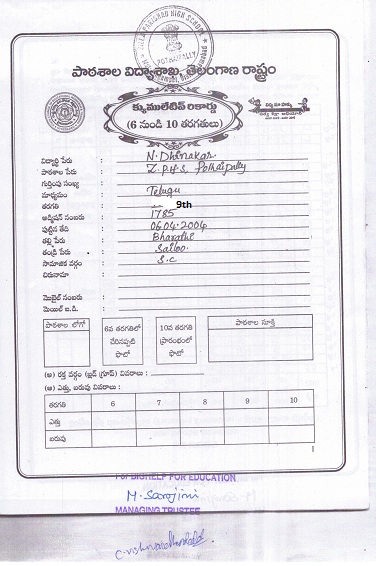 ZILLA PARISHAD HIGH SCHOOL
POTHAIPALLY
పాఠశాల విద్యాశాఖ, తెలంగాణ రాష్ట్రం
క్యుములేటివ్ రికార్డు
(6 నుండి 10 తరగతులు)
విద్యార్థి పేరు : N. Dhinakar.
పాఠశాల పేరు : Z.P.H.S, Pothaipally
గుర్తింపు సంఖ్య :
మాధ్యమం : Telugu
తరగతి : 9th
అడ్మిషన్ నంబరు : 1785
పుట్టిన తేది : 06.04.2004
తల్లి పేరు : Bharathi
తండ్రి పేరు : Sailoo.
సామాజిక వర్గం : S.C
చిరునామా :
మొబైల్ నంబరు :
మెయిల్ ఐ.డి. :
పాఠశాల లోగో
6వ తరగతిలో చేరినప్పటి ఫొటో
10వ తరగతి ప్రారంభంలో ఫొటో
పాఠశాల సూక్తి
(అ) రక్త వర్గం (బ్లడ్ గ్రూప్) వివరాలు :
(ఆ) ఎత్తు, బరువు వివరాలు :
తరగతి 6 7 8 9 10
ఎత్తు
బరువు
1
For BIGHELP FOR EDUCATION
M. Sarojini
MANAGING TRUSTEE